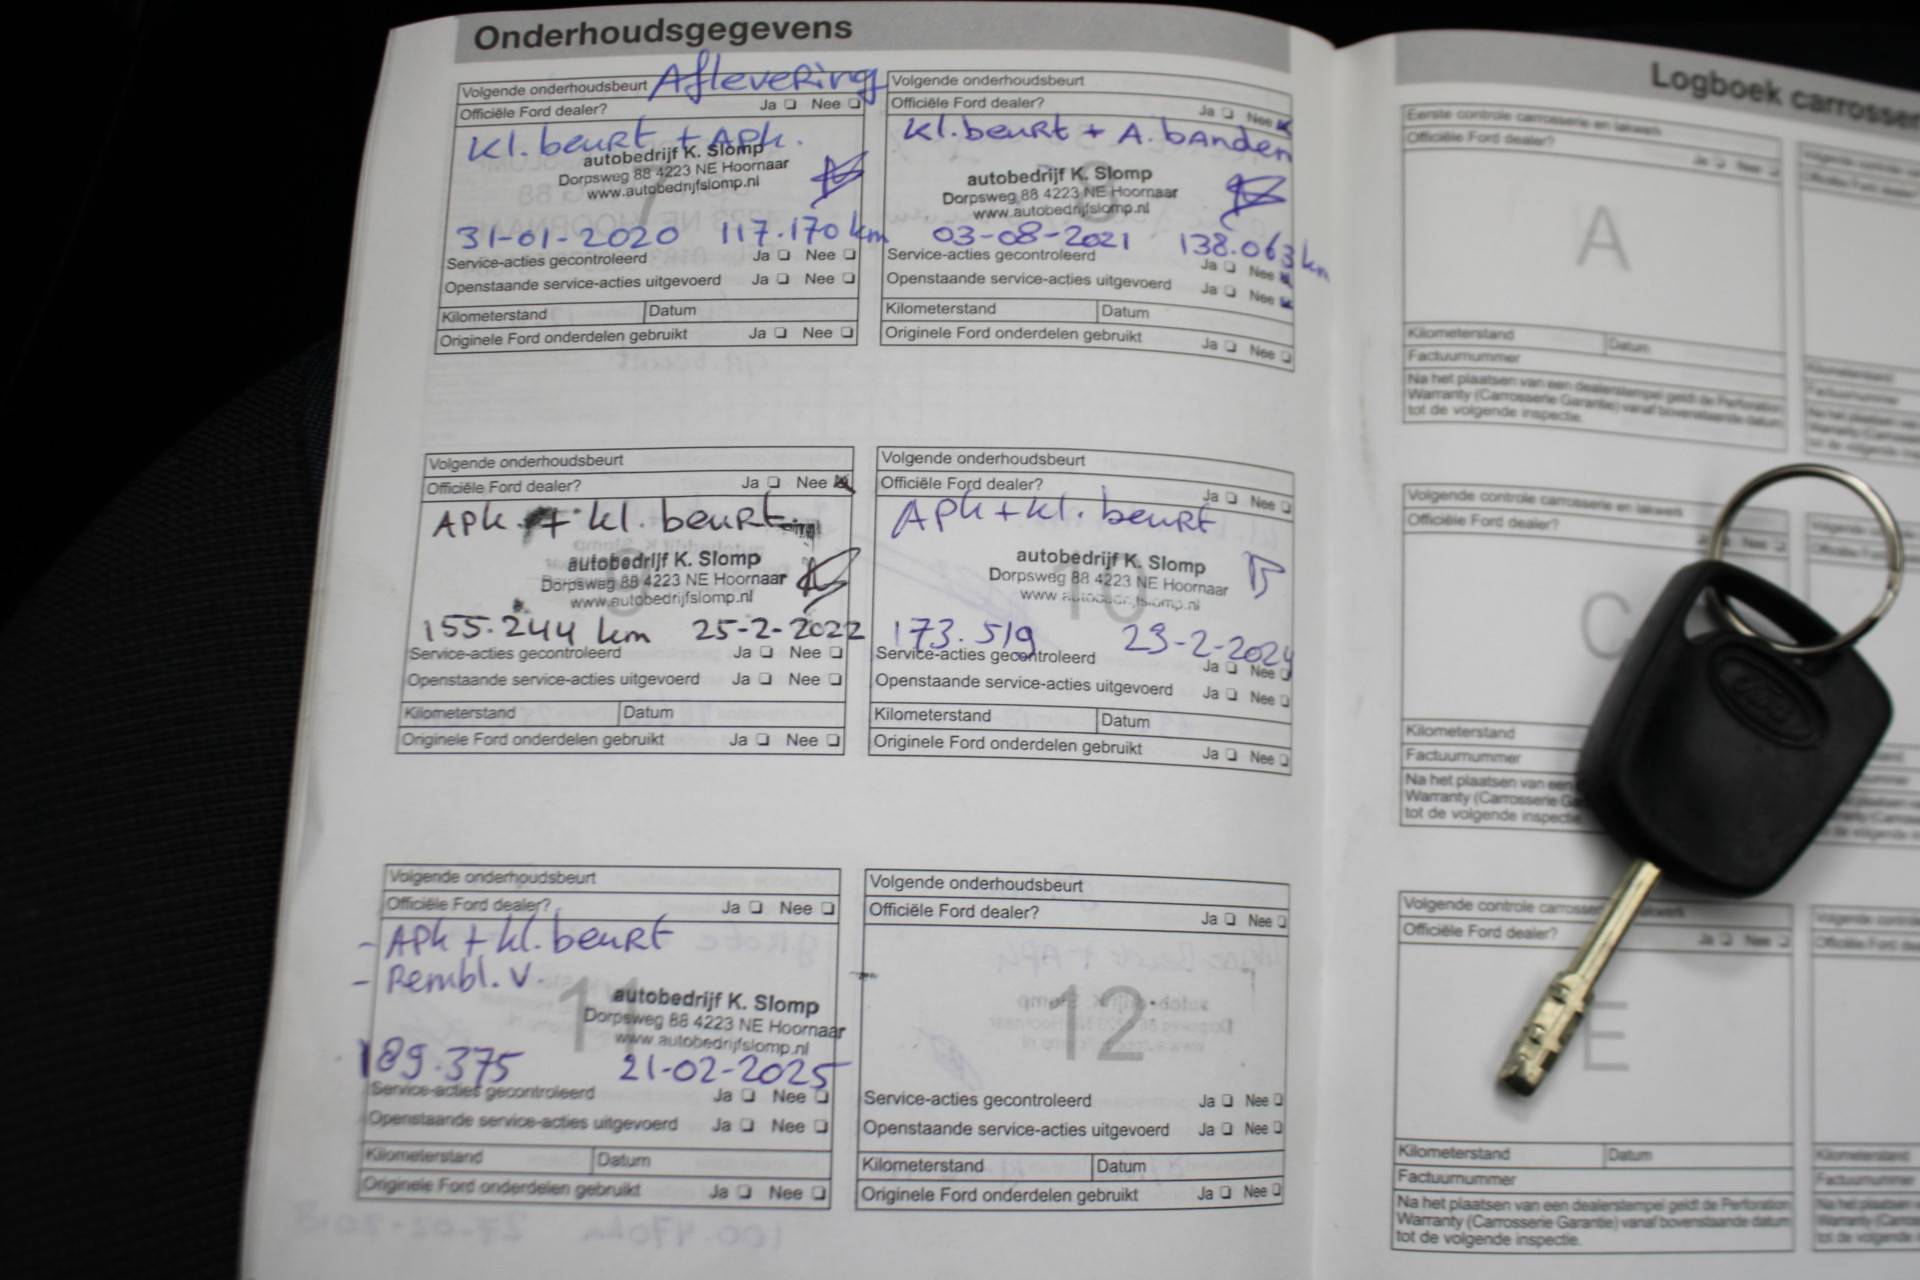 Onderhoudsgegevens
Volgende onderhoudsbeurt Aflevering
Officiële Ford dealer? Ja Nee
Kl. beurt + Apk.
autobedrijf K. Slomp
Dorpsweg 88 4223 NE Hoornaar
www.autobedrijfslomp.nl
7
31-01-2020 117.170 km
Service-acties gecontroleerd Ja Nee
Openstaande service-acties uitgevoerd Ja Nee
Kilometerstand Datum
Originele Ford onderdelen gebruikt Ja Nee
Volgende onderhoudsbeurt
Officiële Ford dealer? Ja Nee
Kl. beurt + A. banden
autobedrijf K. Slomp
Dorpsweg 88 4223 NE Hoornaar
www.autobedrijfslomp.nl
03-08-2021 138.063 km
Service-acties gecontroleerd Ja Nee
Openstaande service-acties uitgevoerd Ja Nee
Kilometerstand Datum
Originele Ford onderdelen gebruikt Ja Nee
Volgende onderhoudsbeurt
Officiële Ford dealer? Ja Nee
Apk + kl. beurt
autobedrijf K. Slomp
Dorpsweg 88 4223 NE Hoornaar
www.autobedrijfslomp.nl
9
155.244 km 25-2-2022
Service-acties gecontroleerd Ja Nee
Openstaande service-acties uitgevoerd Ja Nee
Kilometerstand Datum
Originele Ford onderdelen gebruikt Ja Nee
Volgende onderhoudsbeurt
Officiële Ford dealer? Ja Nee
Apk + kl. beurt
autobedrijf K. Slomp
Dorpsweg 88 4223 NE Hoornaar
www.autobedrijfslomp.nl
10
173.519 23-2-2024
Service-acties gecontroleerd Ja Nee
Openstaande service-acties uitgevoerd Ja Nee
Kilometerstand Datum
Originele Ford onderdelen gebruikt Ja Nee
Volgende onderhoudsbeurt
Officiële Ford dealer? Ja Nee
- Apk + kl. beurt
- Rembl. V.
11
autobedrijf K. Slomp
Dorpsweg 88 4223 NE Hoornaar
www.autobedrijfslomp.nl
189.375 21-02-2025
Service-acties gecontroleerd Ja Nee
Openstaande service-acties uitgevoerd Ja Nee
Kilometerstand Datum
Originele Ford onderdelen gebruikt Ja Nee
Volgende onderhoudsbeurt
Officiële Ford dealer? Ja Nee
12
Service-acties gecontroleerd Ja Nee
Openstaande service-acties uitgevoerd Ja Nee
Kilometerstand Datum
Originele Ford onderdelen gebruikt Ja Nee
Logboek
Eerste controle carrosserie en lakwerk
Officiële Ford dealer? Ja Nee
A
Kilometerstand Datum
Factuurnummer
Na het plaatsen van een dealerstempel geldt de Perforation
Warranty (Carrosserie Garantie) vanaf bovenstaande datum
tot de volgende inspectie.
Volgende controle carrosserie en lakwerk
Officiële Ford dealer? Nee
C
Kilometerstand
Factuurnummer
Na het plaatsen van een
Warranty (Carrosserie
tot de volgende inspectie
Volgende controle
Officiële Ford dealer? Ja Nee
E
Kilometerstand Datum
Factuurnummer
Na het plaatsen van een dealerstempel geldt de Perforation
Warranty (Carrosserie Garantie) vanaf bovenstaande datum
tot de volgende inspectie.